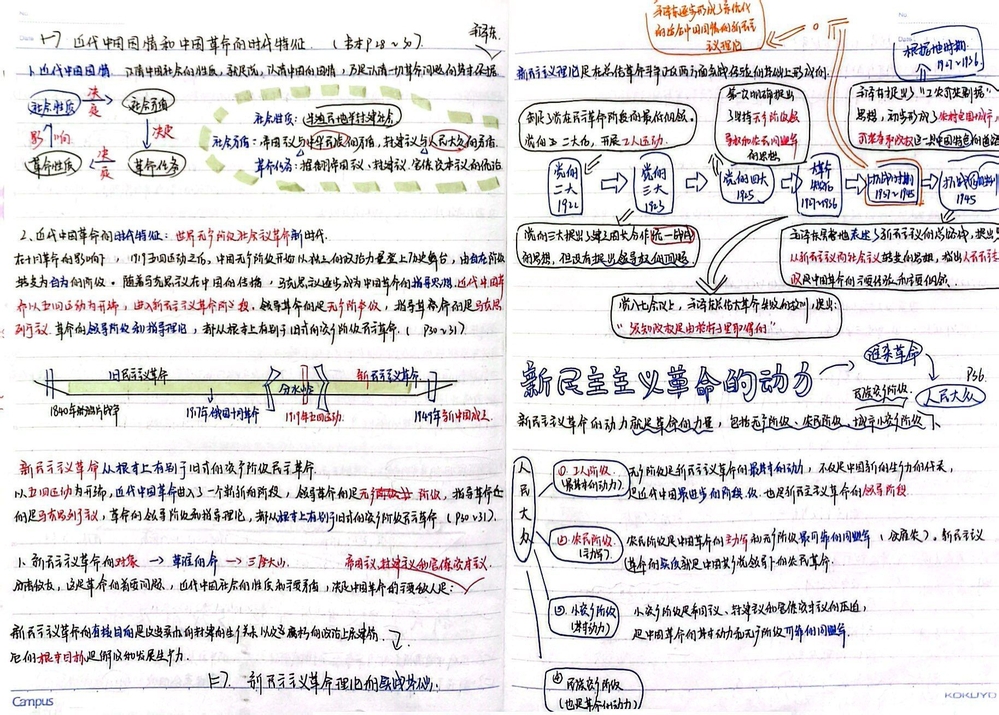 (一) 近代中国国情和中国革命的时代特征. (书本P28~30).
1. 近代中国国情 认清中国社会的性质, 就是说, 认清中国的国情, 乃是认清一切革命问题的基本依据
社会性质 决定 社会矛盾
影响 决定
革命性质 决定 革命任务
社会性质: 半殖民地半封建社会
社会矛盾: 帝国主义与中华民族的矛盾, 封建主义与人民大众的矛盾.
革命任务: 推翻帝国主义、封建主义、官僚资本主义的统治
2. 近代中国革命的时代特征: 世界无产阶级社会主义革命新时代.
在十月革命的影响下, 1919五四运动之后, 中国无产阶级开始以独立的政治力量登上历史舞台, 由自在阶级
转变为自为的阶级. 随着马克思主义在中国的传播, 马克思主义逐步成为中国革命的指导思想. 近代中国革
命以五四运动为开端, 进入新民主主义革命阶段. 领导革命的是无产阶级, 指导革命的是马克思
列宁主义. 革命的领导阶级和指导理论, 都从根本上有别于旧式的资产阶级民主革命. (P30~31).
旧民主主义革命 分水岭 新民主主义革命
1840年鸦片战争 1917年俄国十月革命 1919年五四运动. 1949年新中国成立.
新民主主义革命从根本上有别于旧式的资产阶级民主革命.
以五四运动为开端, 近代中国革命进入了一个崭新的阶段, 领导革命的是无产阶级, 指导革命
的是马克思列宁主义, 革命的领导阶级和指导理论, 都从根本上有别于旧式的资产阶级民主革命 (P30~31).
1. 新民主主义革命的对象 → 革谁的命 → 三座大山. 帝国主义、封建主义和官僚资本主义.
分清敌友, 这是革命的首要问题, 近代中国社会的性质和主要矛盾, 决定中国革命的主要敌人是:
新民主主义革命的直接目的是改变买办的封建的生产关系以及腐朽的政治上层建筑,
它们根本目的是解放和发展生产力.
(二). 新民主主义革命理论的实践基础.
Campus
毛泽东逐步形成了系统化
的适合中国国情的新民主
主义理论
根据地时期
1927~1936
新民主主义理论是在总结革命正反两方面实践经验的基础上形成的.
制定了党在民主革命阶段的最低纲领.
党的二大后, 开展工人运动.
第一次明确提出
了坚持无产阶级
导权和农民同盟军
的思想
毛泽东提出了“工农武装割据”
思想, 初步形成了农村包围城市,
武装夺取政权这一具有中国特色的道路
党的二大 1922
党的三大 1923
党的四大 1925
大革命 1927~1936
抗战时期 1937~1945
1945
党的三大提出了建立国共合作统一战线
的思想, 但没有提出领导权的问题.
毛泽东完整地表述了新民主主义的总路线, 提出
从新民主主义向社会主义转变的思想, 指出人民民主
党八七会议上, 毛泽东总结大革命失败的教训, 提出:
“须知政权是由枪杆子里取得的”
新民主主义革命的动力
谁来革命
人民大众
P36.
民族资产阶级
新民主主义革命的动力就是革命的力量, 包括无产阶级、农民阶级、城市小资产阶级
人民大众
① 工人阶级
(最基本的动力)
无产阶级是新民主主义革命的最基本的动力, 不仅是中国新的生产力的代表,
是近代中国最进步的阶级. 也是新民主主义革命的领导阶级.
② 农民阶级.
(主力军)
农民阶级是中国革命的主力军和无产阶级最可靠的同盟军. 新民主主义
革命的实质就是中国共产党领导下的农民革命.
③. 小资产阶级
(基本动力)
小资产阶级受帝国主义、封建主义和官僚资本主义的压迫,
是中国革命的基本动力和无产阶级可靠的同盟军.
④ 民族资产阶级
(也是革命的动力)
KOKUYO